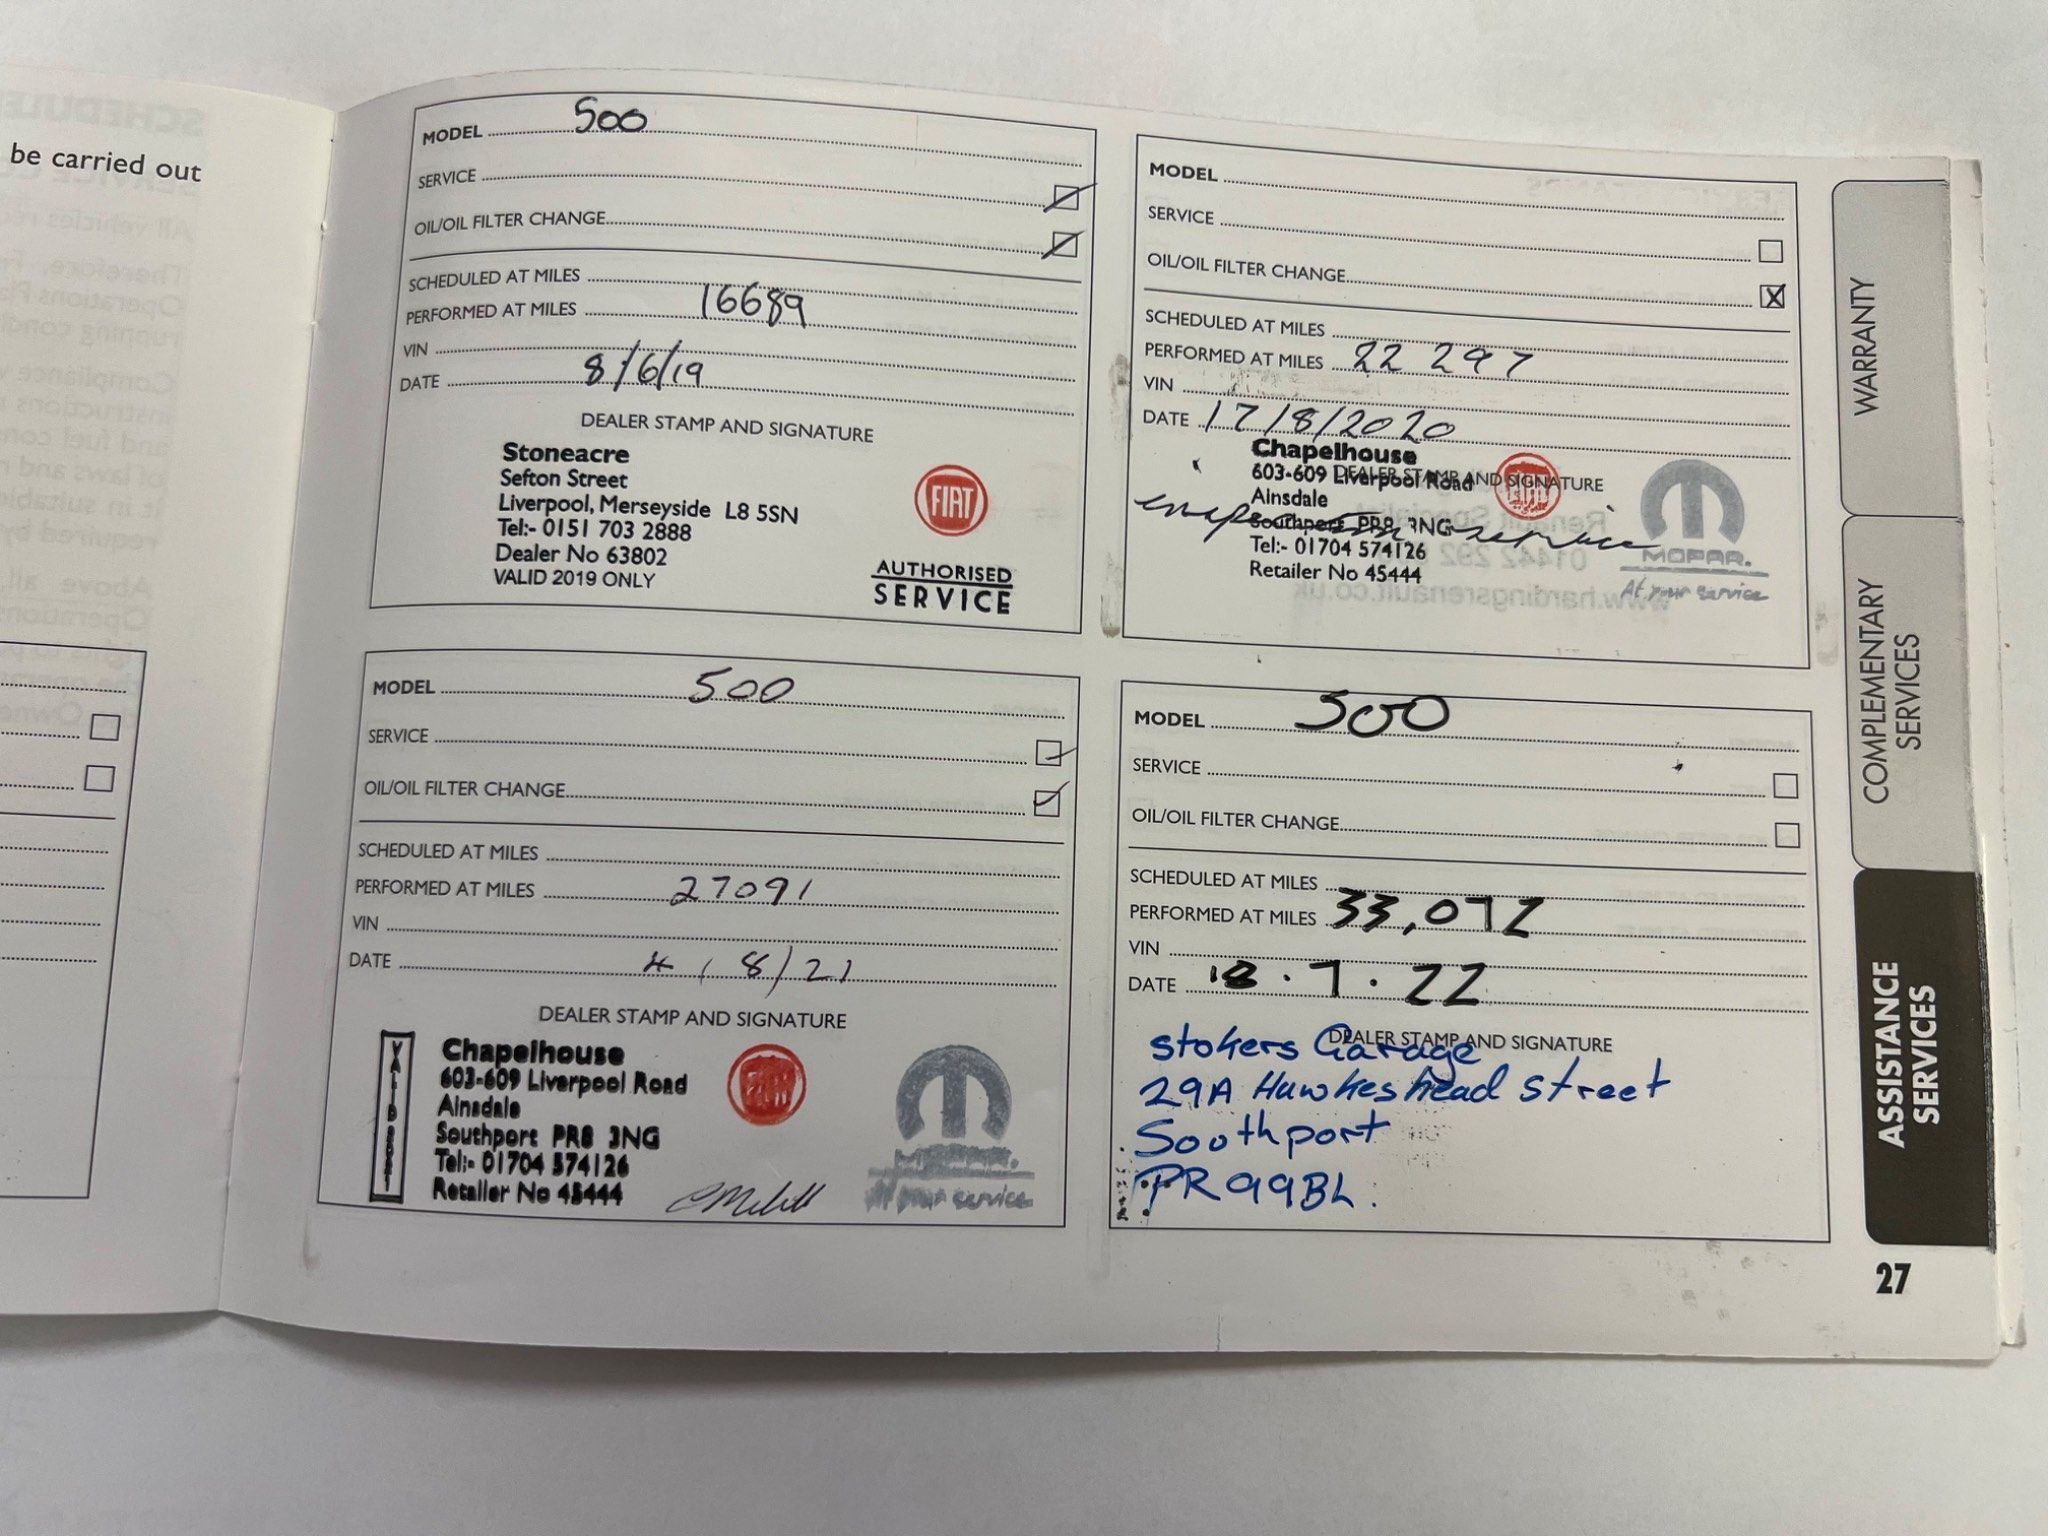 be carried out
MODEL 500
SERVICE
OIL/OIL FILTER CHANGE
SCHEDULED AT MILES
PERFORMED AT MILES 16689
VIN
DATE 8/6/19
DEALER STAMP AND SIGNATURE
Stoneacre
Sefton Street
Liverpool, Merseyside L8 5SN
Tel:- 0151 703 2888
Dealer No 63802
VALID 2019 ONLY
FIAT
AUTHORISED
SERVICE
MODEL
SERVICE
OIL/OIL FILTER CHANGE X
SCHEDULED AT MILES
PERFORMED AT MILES 22 297
VIN
DATE 17/8/2020
DEALER STAMP AND SIGNATURE
Chapelhouse
603-609 Liverpool Road
Ainsdale
Southport PR8 3NG
Tel:- 01704 574126
Retailer No 45444
FIAT
MOPAR.
At your service
MODEL 500
SERVICE
OIL/OIL FILTER CHANGE
SCHEDULED AT MILES
PERFORMED AT MILES 27091
VIN
DATE 4/8/21
DEALER STAMP AND SIGNATURE
Chapelhouse
603-609 Liverpool Road
Ainsdale
Southport PR8 3NG
Tel:- 01704 574126
Retailer No 45444
FIAT
At your service
MODEL 500
SERVICE
OIL/OIL FILTER CHANGE
SCHEDULED AT MILES
PERFORMED AT MILES 33,072
VIN
DATE 18.7.22
DEALER STAMP AND SIGNATURE
Stokers Garage
29A Hawkeshead Street
Southport
PR99BL.
WARRANTY
COMPLEMENTARY
SERVICES
ASSISTANCE
SERVICES
27